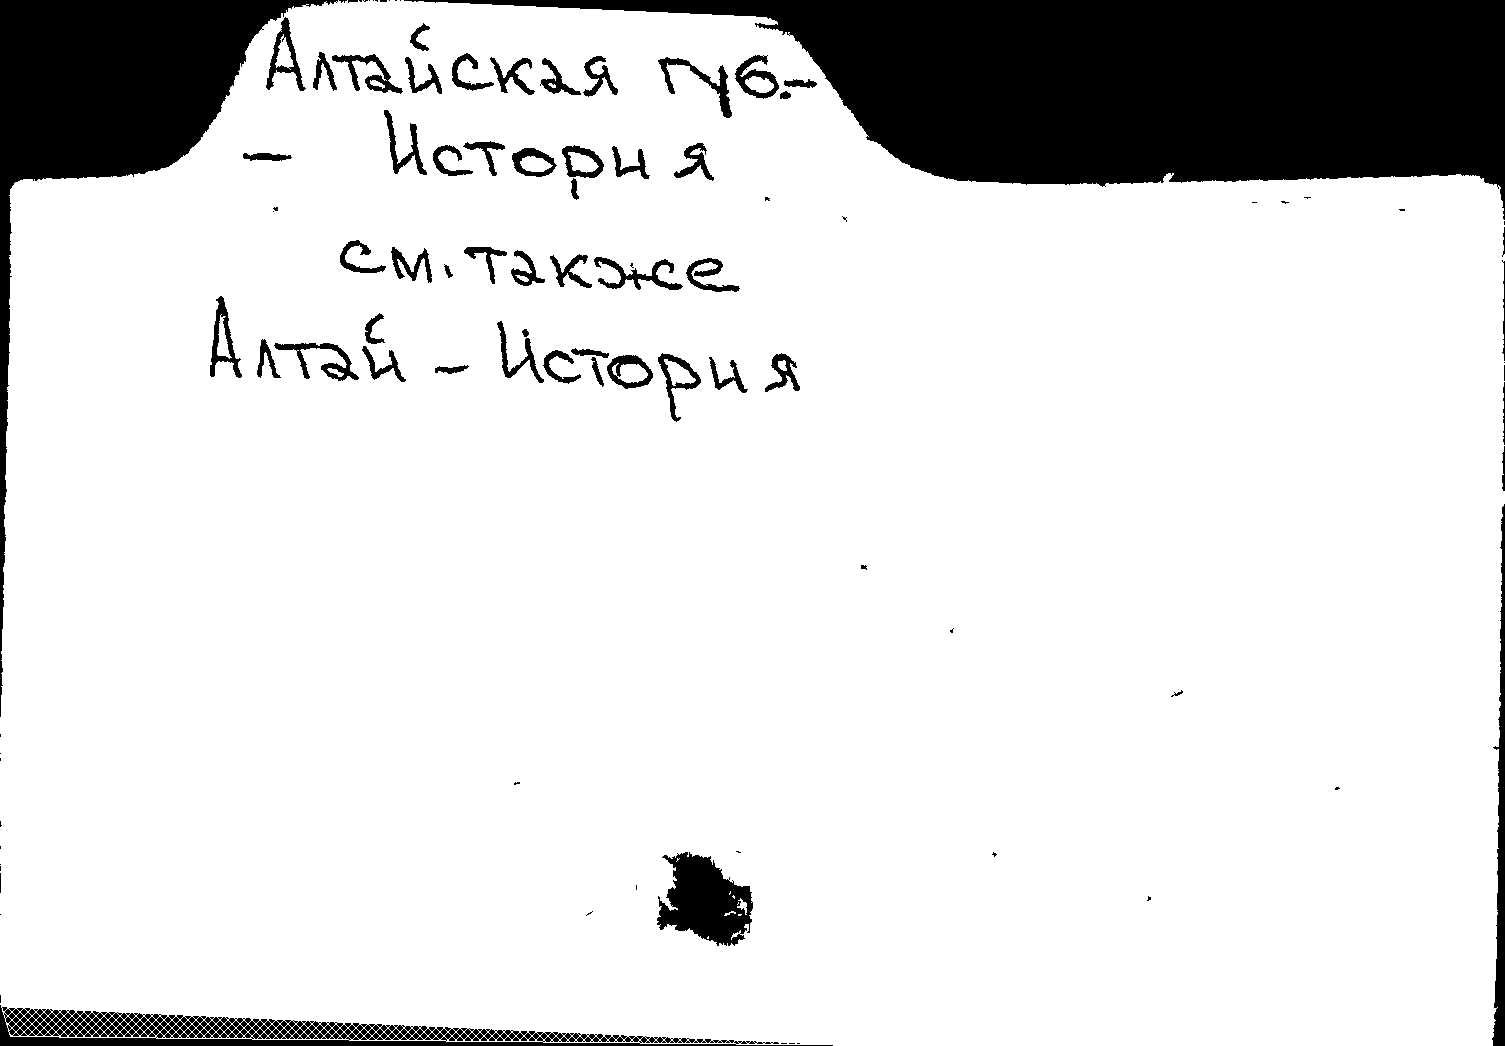 Алтайская губ.-
- История
см. также
Алтай - История